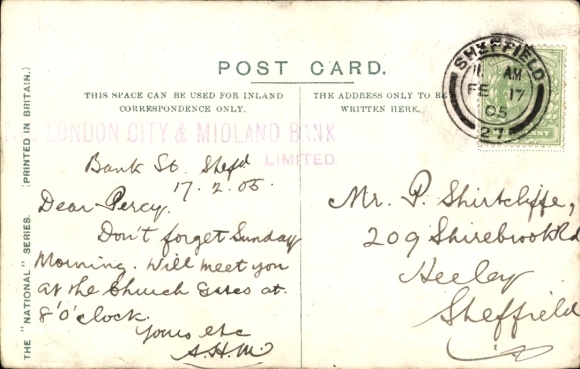 POST CARD.
THIS SPACE CAN BE USED FOR INLAND
CORRESPONDENCE ONLY.
THE ADDRESS ONLY TO BE
WRITTEN HERE.
THE "NATIONAL" SERIES. (PRINTED IN BRITAIN.)
SHEFFIELD
11 AM
FE 17
05
27
HALFPENNY
LONDON CITY & MIDLAND BANK
LIMITED.
Bank St. Shefd
17.2.05.
Dear Percy.
Don't forget Sunday
Morning. Will meet you
at the Church Gates at
8 o'clock.
Yours etc
A.H.M.
Mr. P. Shirtcliffe,
209 Shirebrook Rd
Heeley
Sheffield